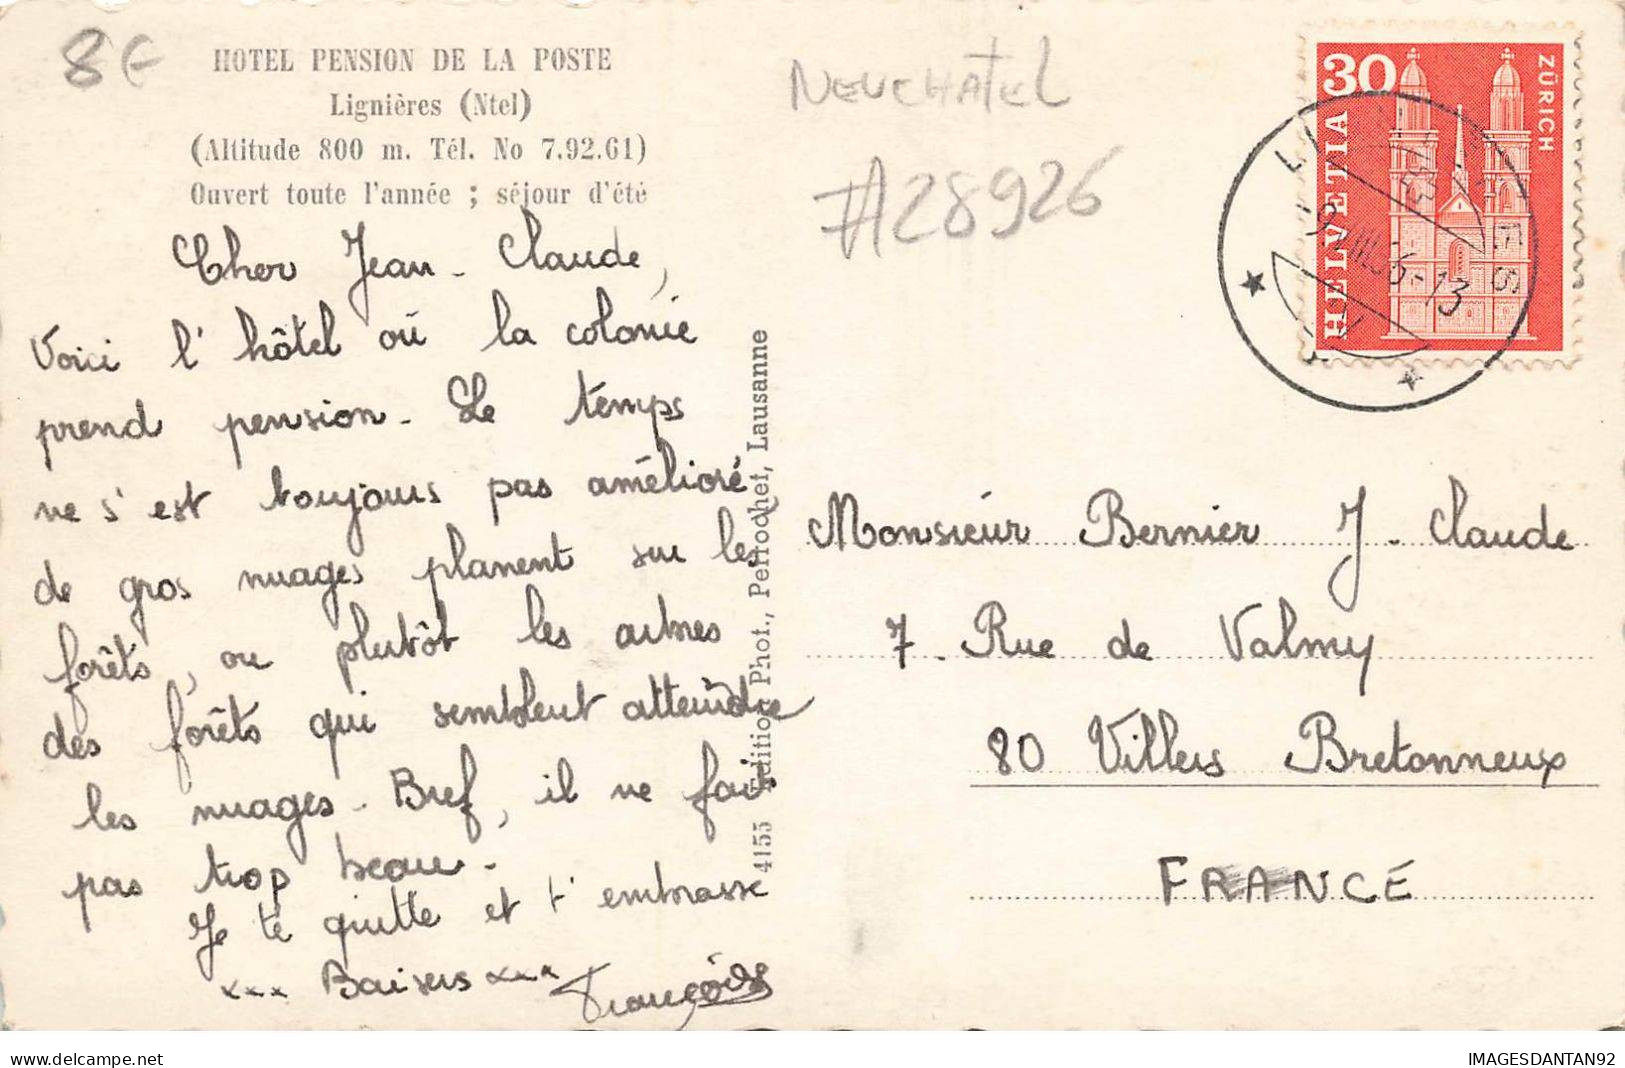 8€
HOTEL PENSION DE LA POSTE
Lignières (Ntel)
(Altitude 800 m. Tél. No 7.92.61)
Ouvert toute l'année ; séjour d'été
Cher Jean-Claude,
Voici l'hôtel où la colonie
prend pension. Le temps
ne s'est toujours pas amélioré
de gros nuages planent sur les
forêts, ou plutôt les autres
des forêts qui semblent atteindre
les nuages. Bref, il ne fait
pas trop beau.
Je te quitte et t'embrasse
xxx Baisers xxx
4155 Edition Phot., Perrochet, Lausanne
NEUCHATEL
#28926
30
ZÜRICH
HELVETIA
Monsieur Bernier J-Claude
7. Rue de Valmy
80 Villers Bretonneux
FRANCE
www.delcampe.net
IMAGESDANTAN92